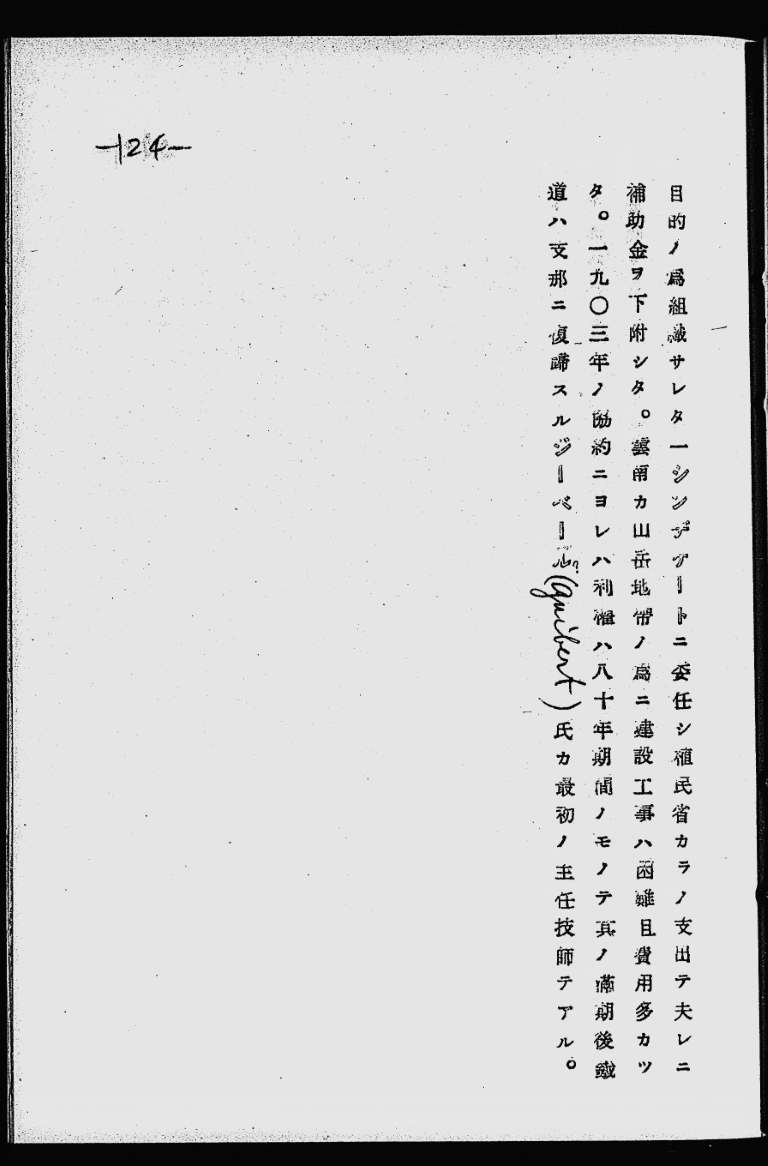 目的ノ爲組織サレタ一シンヂケートニ委任シ殖民省カラノ支出テ夫レニ
補助金ヲ下附シタ。雲南カ山岳地帶ノ爲ニ建設工事ハ困難且費用多カツ
タ。一九〇三年ノ協約ニヨレハ利權ハ八十年期間ノモノテ其ノ滿期後鐵
道ハ支那ニ復歸スルジーベール?(Guibert)氏カ最初ノ主任技師テアル。
-124-